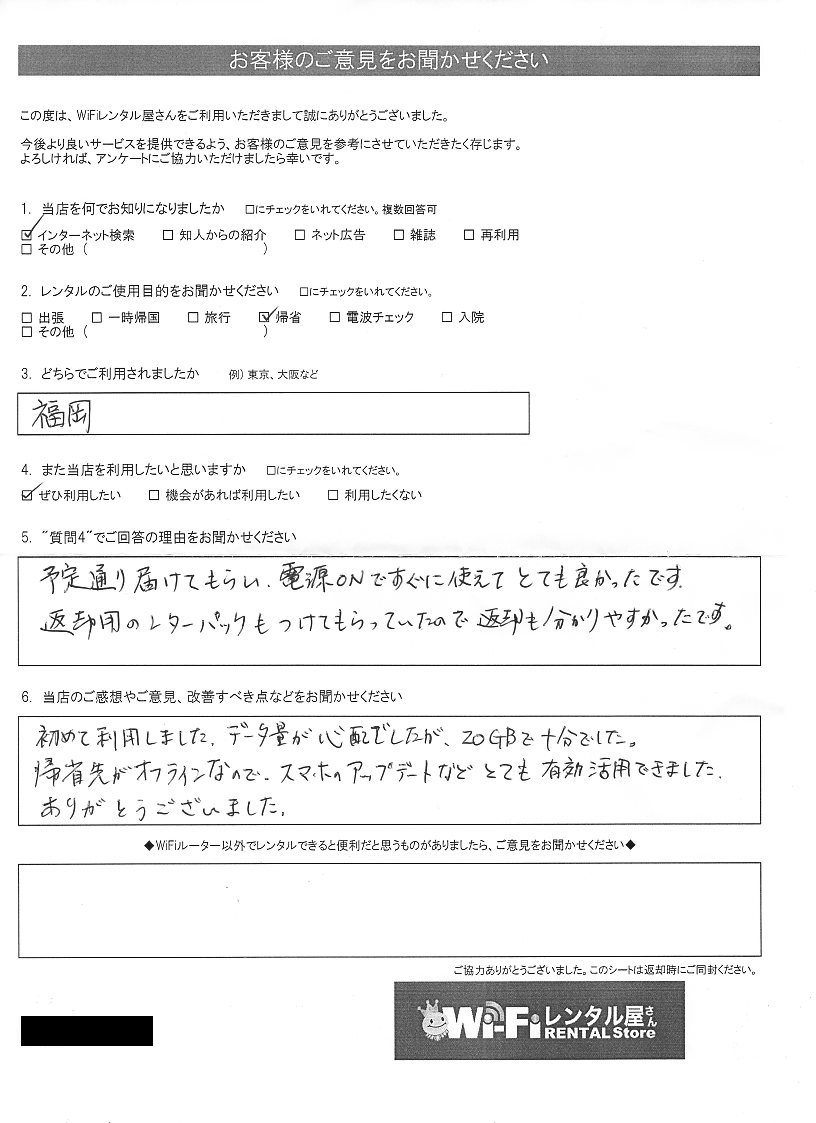 お客様のご意見をお聞かせください
この度は、WiFiレンタル屋さんをご利用いただきまして誠にありがとうございました。
今後より良いサービスを提供できるよう、お客様のご意見を参考にさせていただきたく存じます。
よろしければ、アンケートにご協力いただけましたら幸いです。
1. 当店を何でお知りになりましたか □にチェックをいれてください。複数回答可
☑ インターネット検索 □ 知人からの紹介 □ ネット広告 □ 雑誌 □ 再利用
□ その他 ( )
2. レンタルのご使用目的をお聞かせください □にチェックをいれてください。
□ 出張 □ 一時帰国 □ 旅行 ☑ 帰省 □ 電波チェック □ 入院
□ その他 ( )
3. どちらでご利用されましたか 例) 東京、大阪など
福岡
4. また当店を利用したいと思いますか □にチェックをいれてください。
☑ ぜひ利用したい □ 機会があれば利用したい □ 利用したくない
5. "質問4"でご回答の理由をお聞かせください
予定通り届けてもらい、電源ONですぐに使えてとても良かったです.
返却用のレターパックもつけてもらっていたので返却も分かりやすかったです。
6. 当店のご感想やご意見、改善すべき点などをお聞かせください
初めて利用しました. データ量が心配でしたが、20GBで十分でした。
帰省先がオフラインなので、スマホのアップデートなどとても有効活用できました.
ありがとうございました.
◆WiFiルーター以外でレンタルできると便利だと思うものがありましたら、ご意見をお聞かせください◆
ご協力ありがとうございました。このシートは返却時にご同封ください。
Wi-Fiレンタル屋さん
RENTAL Store